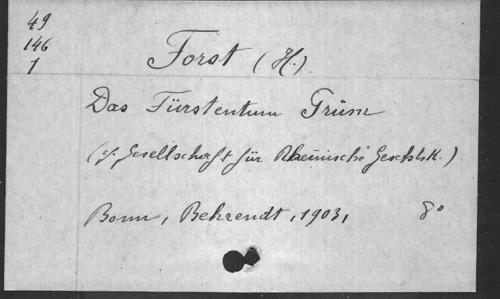 49
146
1
Forst (H.)
Das Fürstentum Prüm
(s. Gesellschaft für Rheinische Geschtsk.)
Bonn, Behrendt, 1903, 8°